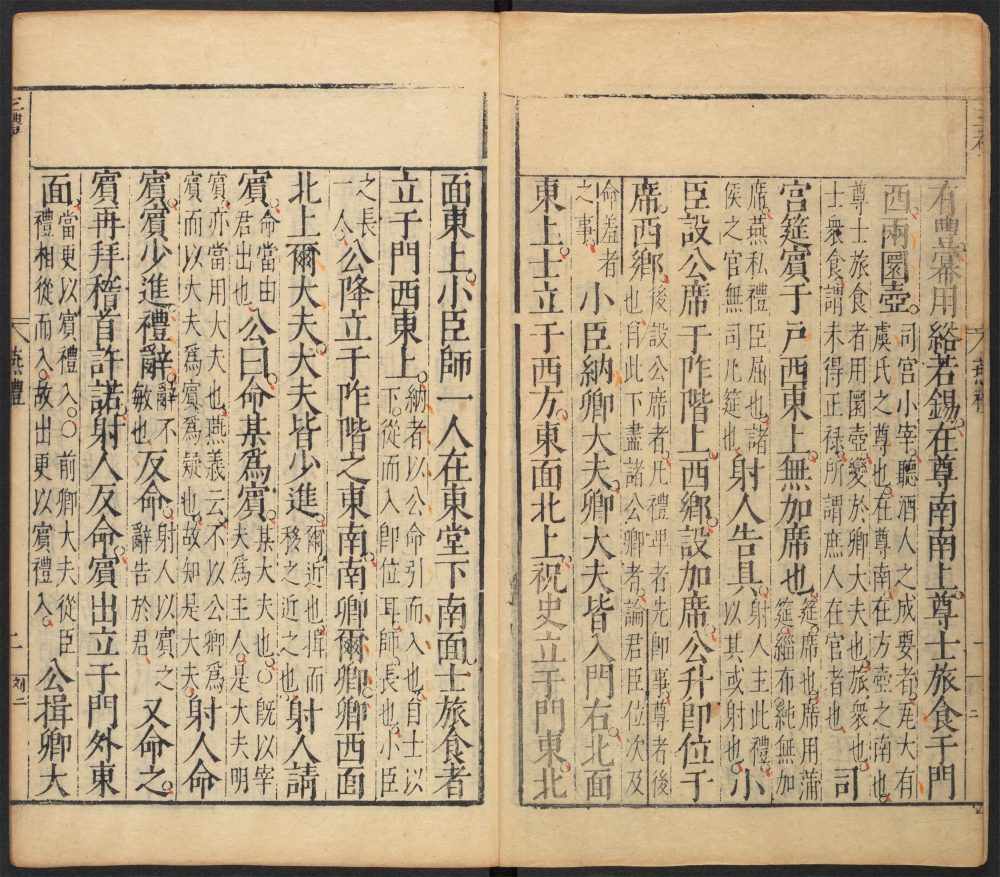 有豐冪用綌若錫。在尊南南上。尊士旅食于門
西兩圜壺。司宮小宰。聽酒人之成要者。瓦大有
虞氏之尊也。在尊南在方壺之南也。
尊士旅食者用圜壺變於卿大夫也。旅衆也。
士衆食謂未得正祿。所謂庶人在官者也。司
宮筵賓于戶西東上。無加席也。筵。席也。席用蒲
筵。緇布純。無加
席。燕私禮臣屈也。諸
侯之官無司几筵也。射人告具。射人主此禮。
以其或射也。小
臣設公席于阼階上。西鄉。設加席。公升卽位于
席。西鄉。後設公席者。凡禮卑者先卽事。尊者後
也。自此下盡諸公卿者。論君臣位次及
命羞者
之事。小臣納卿大夫。卿大夫皆入門右北面
東上。士立于西方。東面北上。祝史立于門東北
面東上。小臣師一人在東堂下南面。士旅食者
立于門西東上。納者以公命引而入也。自士以
下。從而入卽位耳。師。長也。小臣
之長
一人。公降立于阼階之東南。南鄉爾卿。卿西面
北上。爾大夫。大夫皆少進。爾近也。揖而
移之近之也。射人請
賓。命當由
君出也。公曰。命某爲賓。某大夫也。○旣以宰
夫爲主人。是大夫明
賓亦當用大夫也。燕義云。不以公卿爲
賓。而以大夫爲賓。爲疑也。故知是大夫。射人命
賓。賓少進禮辭。辭不
敏也。反命。射人以賓之
辭告於君。又命之。
賓再拜稽首許諾。射人反命。賓出立于門外東
面。當更以賓禮入。○前卿大夫從臣
禮相從而入。故出更以賓禮入。公揖卿大
燕禮
二
刻二